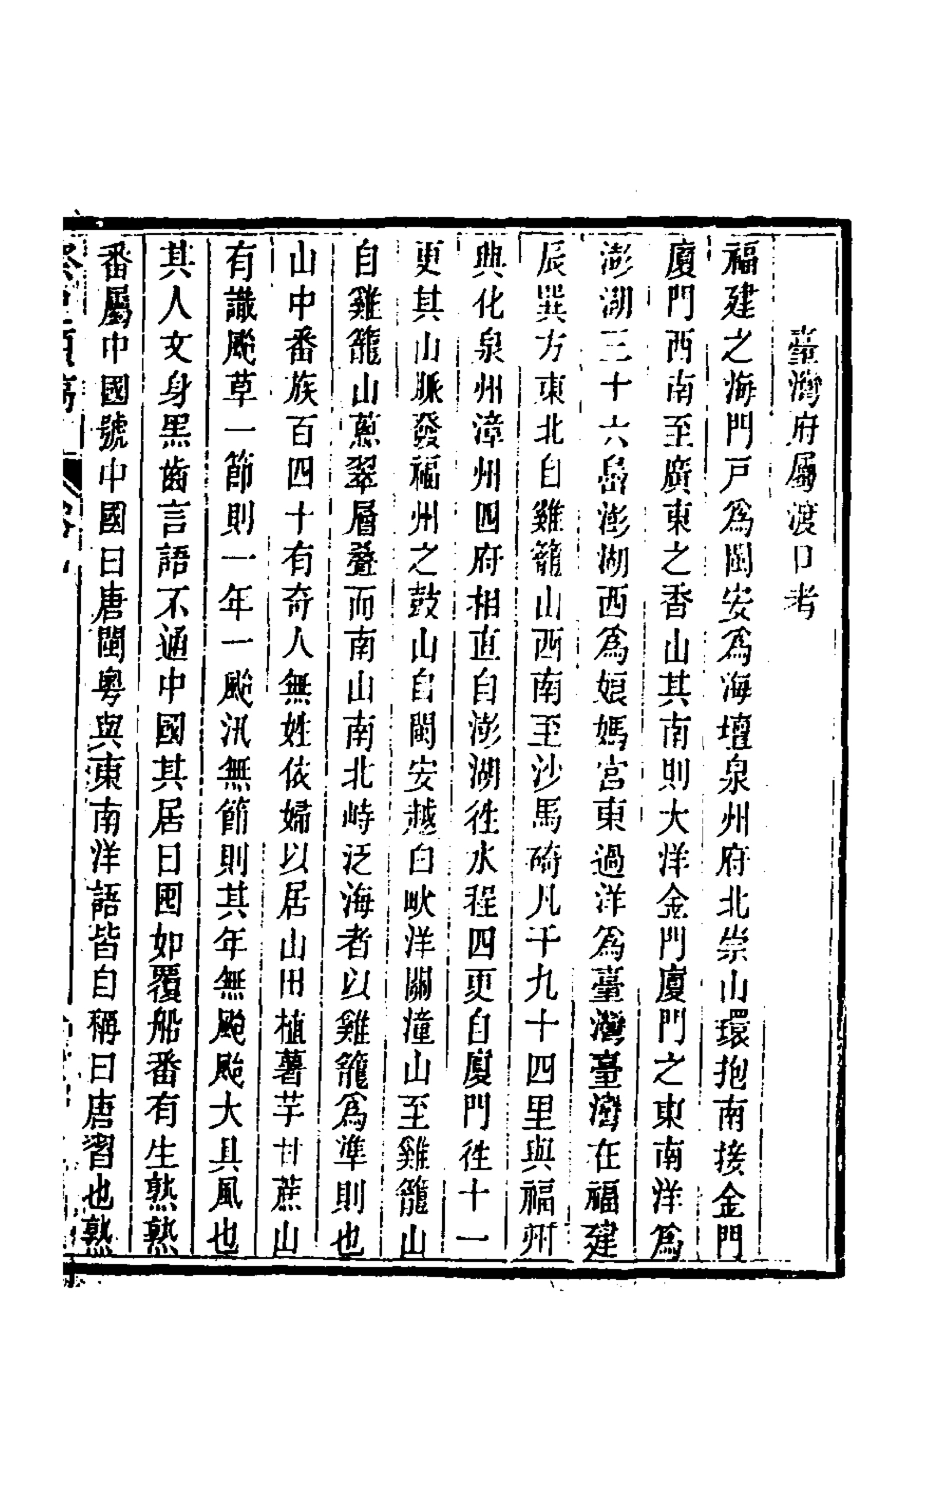 臺灣府屬渡口考
福建之海門戶爲閩安爲海壇泉州府北崇山環抱南接金門
廈門西南至廣東之香山其南則大洋金門廈門之東南洋爲
澎湖三十六島澎湖西爲娘媽宮東過洋爲臺灣臺灣在福建
辰巽方東北自雞籠山西南至沙馬碕凡千九十四里與福州
興化泉州漳州四府相直自澎湖徃水程四更自廈門徃十一
更其山脈發福州之鼓山自閩安越白畎洋關潼山至雞籠山
自雞籠山蔥翠層叠而南山南北峙泛海者以雞籠爲準則也
山中番族百四十有奇人無姓依婦以居山田植薯芋甘蔗山
有識颱草一節則一年一颱汛無節則其年無颱颱大具風也
其人文身黑齒言語不通中國其居曰囤如覆船番有生熟熟
番屬中國號中國曰唐閩粵與東南洋語皆自稱曰唐習也熟